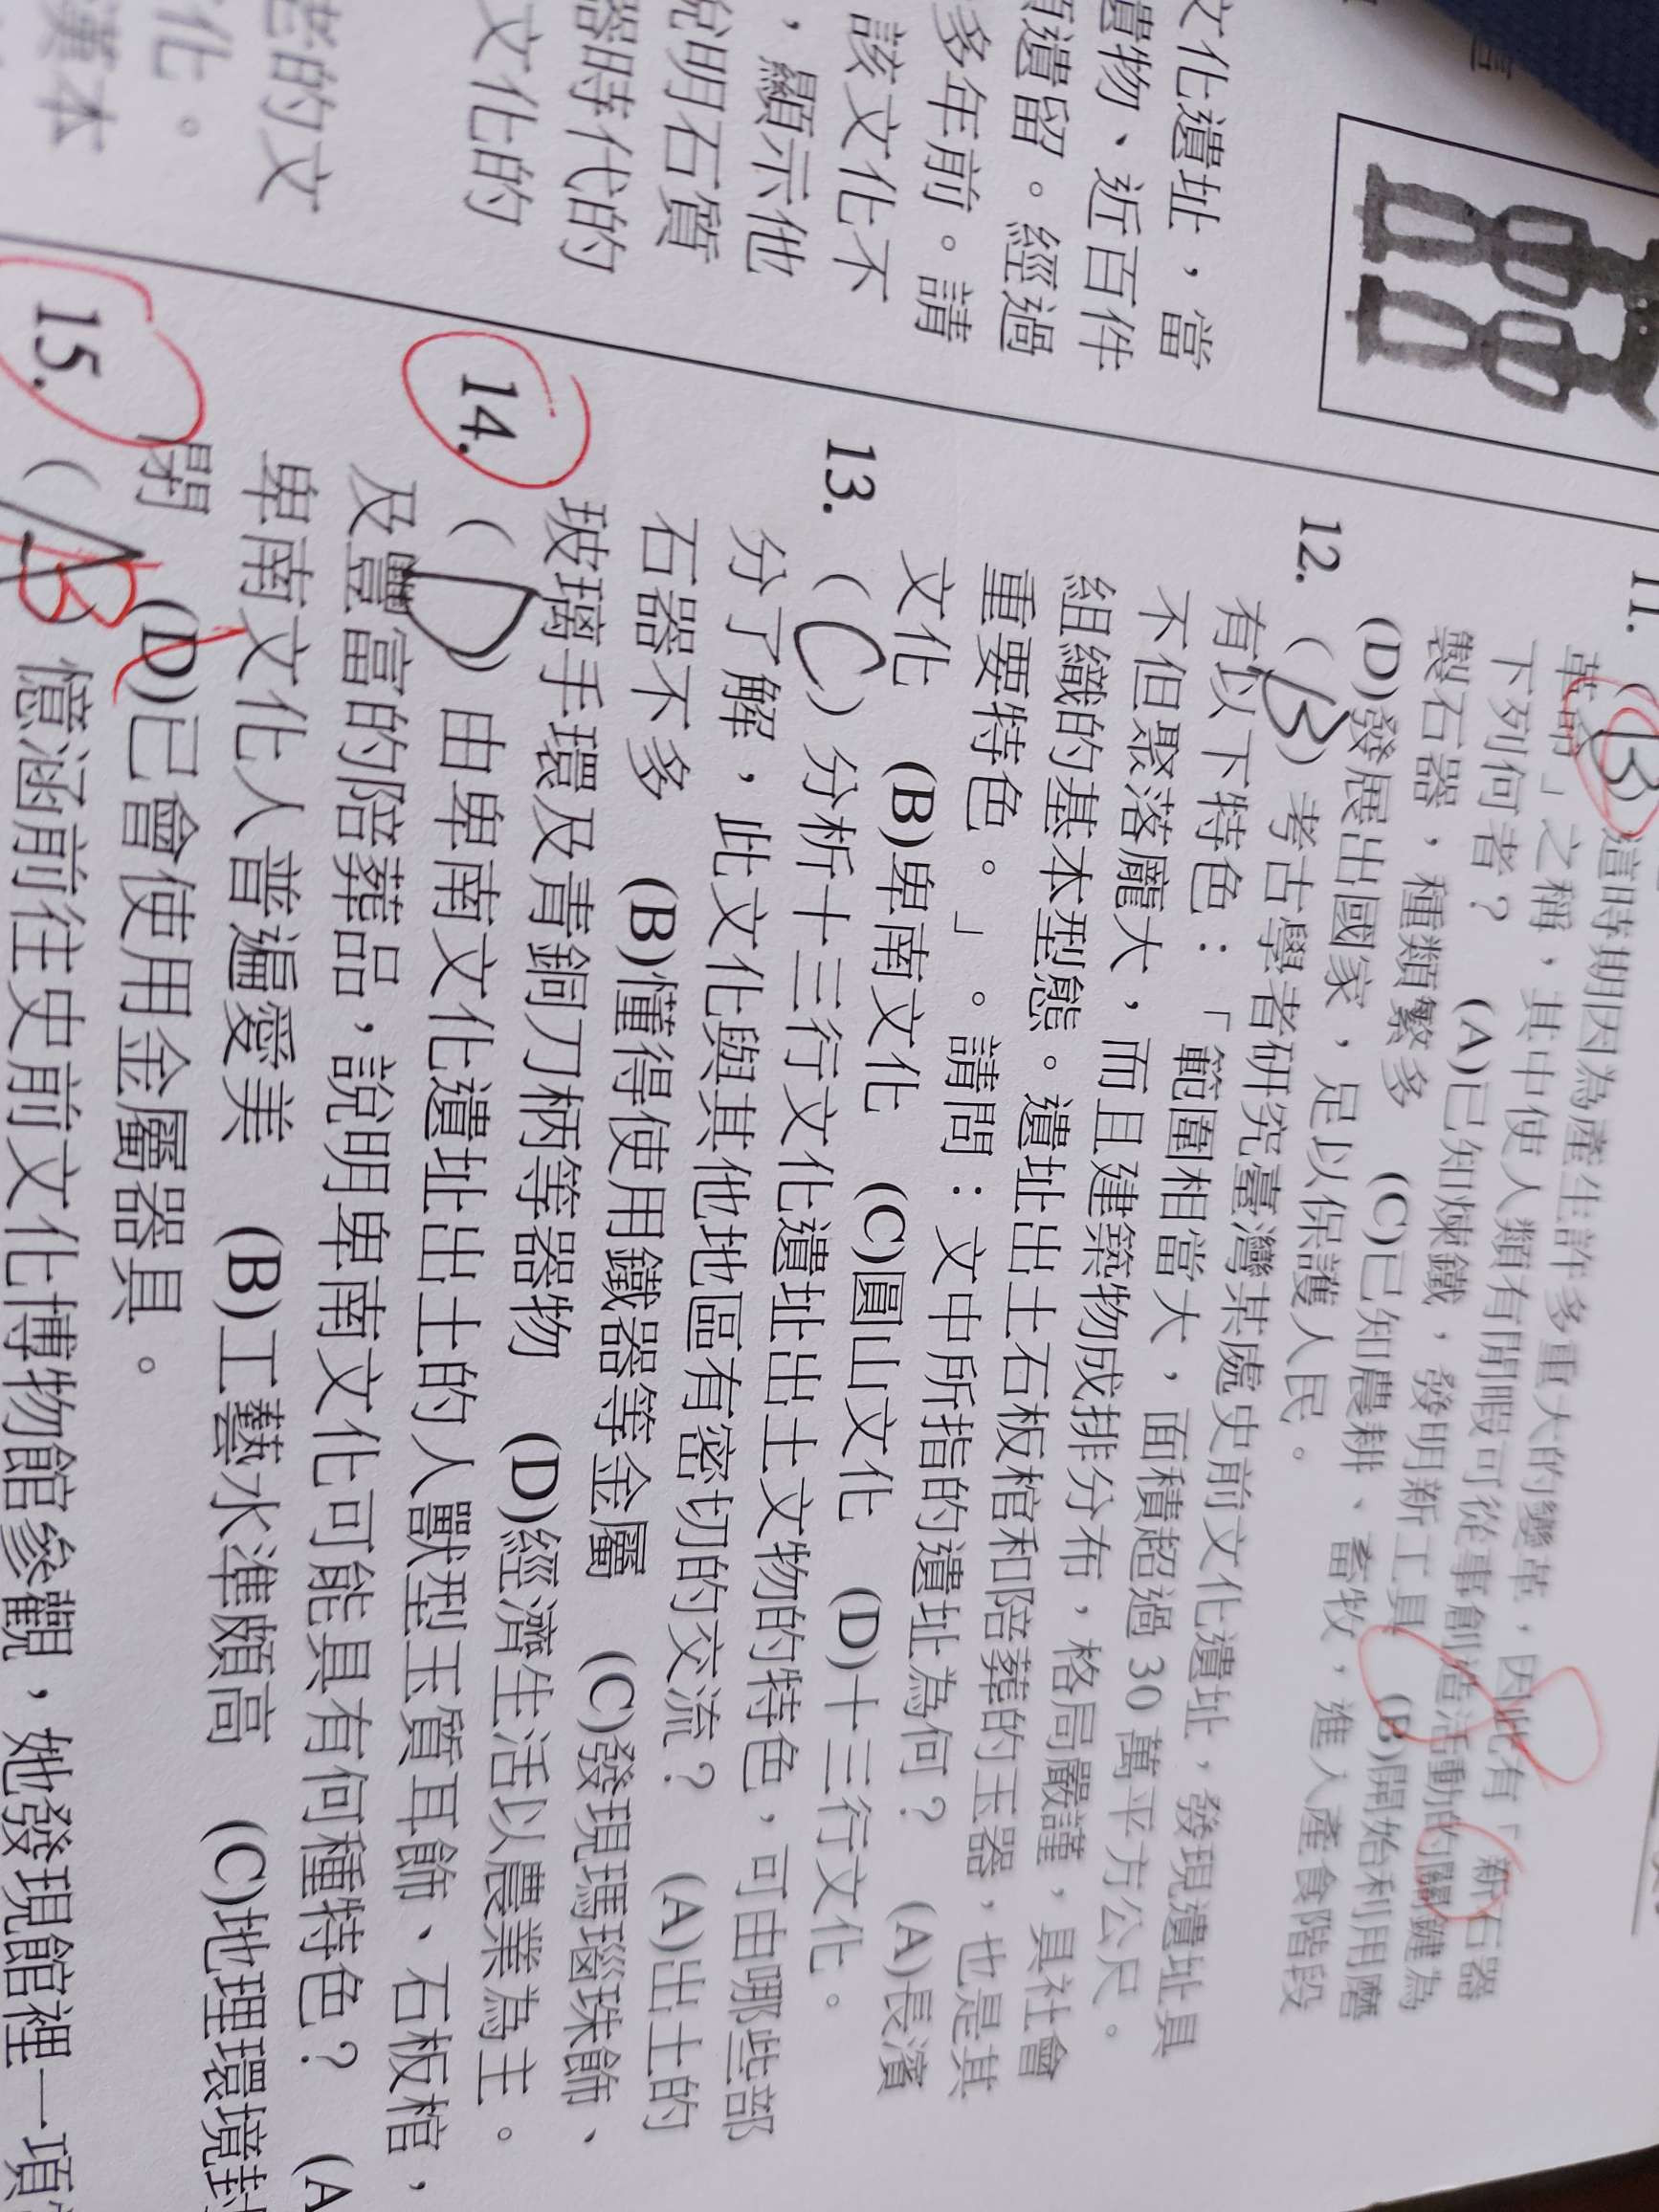 文化遺址,當
遺物、近百件
遺留。經過
多年前。請
該文化不
,顯示他
說明石質
器時代的
文化的
老的文
化。
漢本
11. (B) 這時期因為產生許多重大的變革,因此有「新石器
革命」之稱,其中使人類有閒暇可從事創造活動的關鍵為
下列何者? (A)已知煉鐵,發明新工具 (B)開始利用磨
製石器,種類繁多 (C)已知農耕、畜牧,進入產食階段
(D)發展出國家,足以保護人民。
12. (B) 考古學者研究臺灣某處史前文化遺址,發現遺址具
有以下特色:「範圍相當大,面積超過 30 萬平方公尺。
不但聚落龐大,而且建築物成排分布,格局嚴謹,具社會
組織的基本型態。遺址出土石板棺和陪葬的玉器,也是其
重要特色。」。請問:文中所指的遺址為何? (A)長濱
文化 (B)卑南文化 (C)圓山文化 (D)十三行文化。
13. (C) 分析十三行文化遺址出土文物的特色,可由哪些部
分了解,此文化與其他地區有密切的交流? (A)出土的
石器不多 (B)懂得使用鐵器等金屬 (C)發現瑪瑙珠飾、
玻璃手環及青銅刀柄等器物 (D)經濟生活以農業為主。
14. (D) 由卑南文化遺址出土的人獸型玉質耳飾、石板棺,
及豐富的陪葬品,說明卑南文化可能具有何種特色? (A
卑南文化人普遍愛美 (B)工藝水準頗高 (C)地理環境封
閉 (D)已會使用金屬器具。
15. (B 憶涵前往史前文化博物館參觀,她發現館裡一項